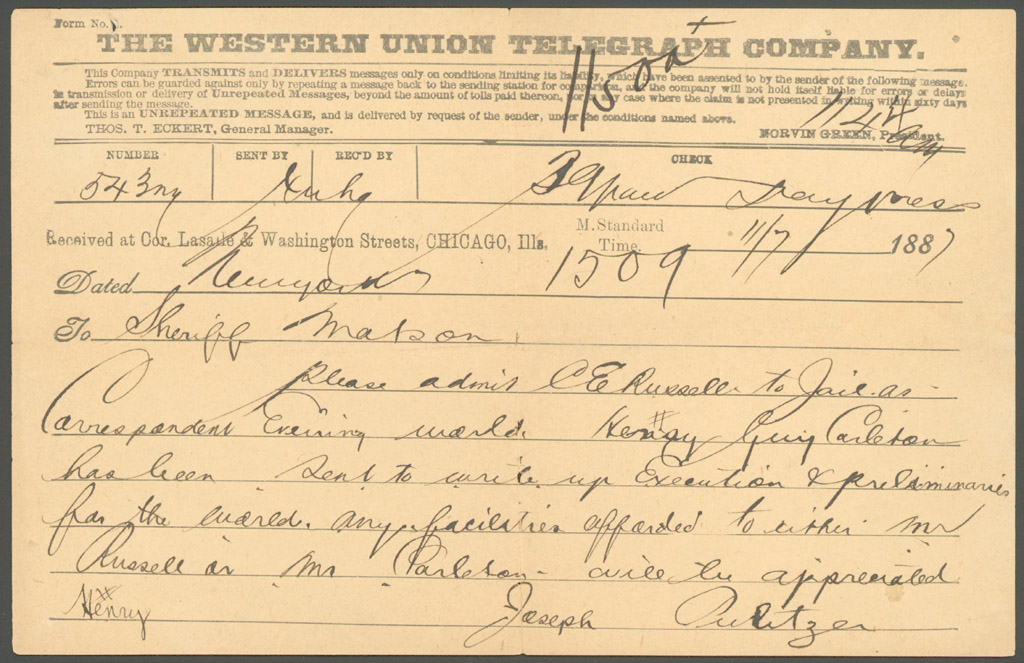 Form No.
THE WESTERN UNION TELEGRAPH COMPANY.
This Company TRANSMITS and DELIVERS messages only on conditions limiting its liability, which have been assented to by the sender of the following message.
Errors can be guarded against only by repeating a message back to the sending station for comparison, and the company will not hold itself liable for errors or delays
in transmission or delivery of Unrepeated Messages, beyond the amount of tolls paid thereon, nor in any case where the claim is not presented in writing within sixty days
after sending the message.
This is an UNREPEATED MESSAGE, and is delivered by request of the sender, under the conditions named above.
THOS. T. ECKERT, General Manager. NORVIN GREEN, President.
1150a
NUMBER SENT BY REC'D BY CHECK
543ny 39 paid Day press
Received at Cor. Lasalle & Washington Streets, CHICAGO, Ills. M. Standard Time. 11/7 1887
1509
Dated Newyork
To Sheriff Matson
Please admit C E Russell to Jail as
Correspondent Evening world. Henry Guy Carleton
has been sent to write up Execution & preliminaries
for the world. any facilities afforded to either Mr
Russell or Mr Carleton will be appreciated
# Henry Joseph Pulitzer